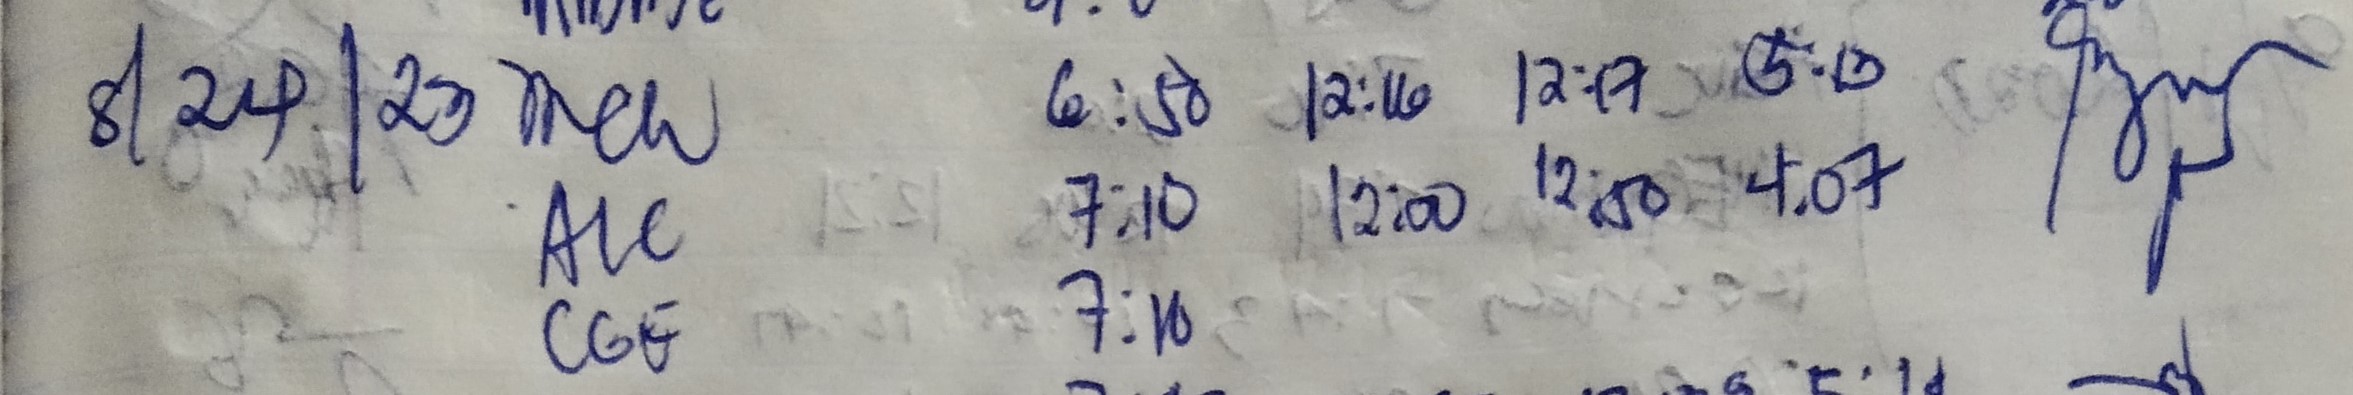 8/24/23 MCW 6:50 12:16 12:17 5:10
ALC 7:10 12:00 12:50 4:07
CGE 7:10